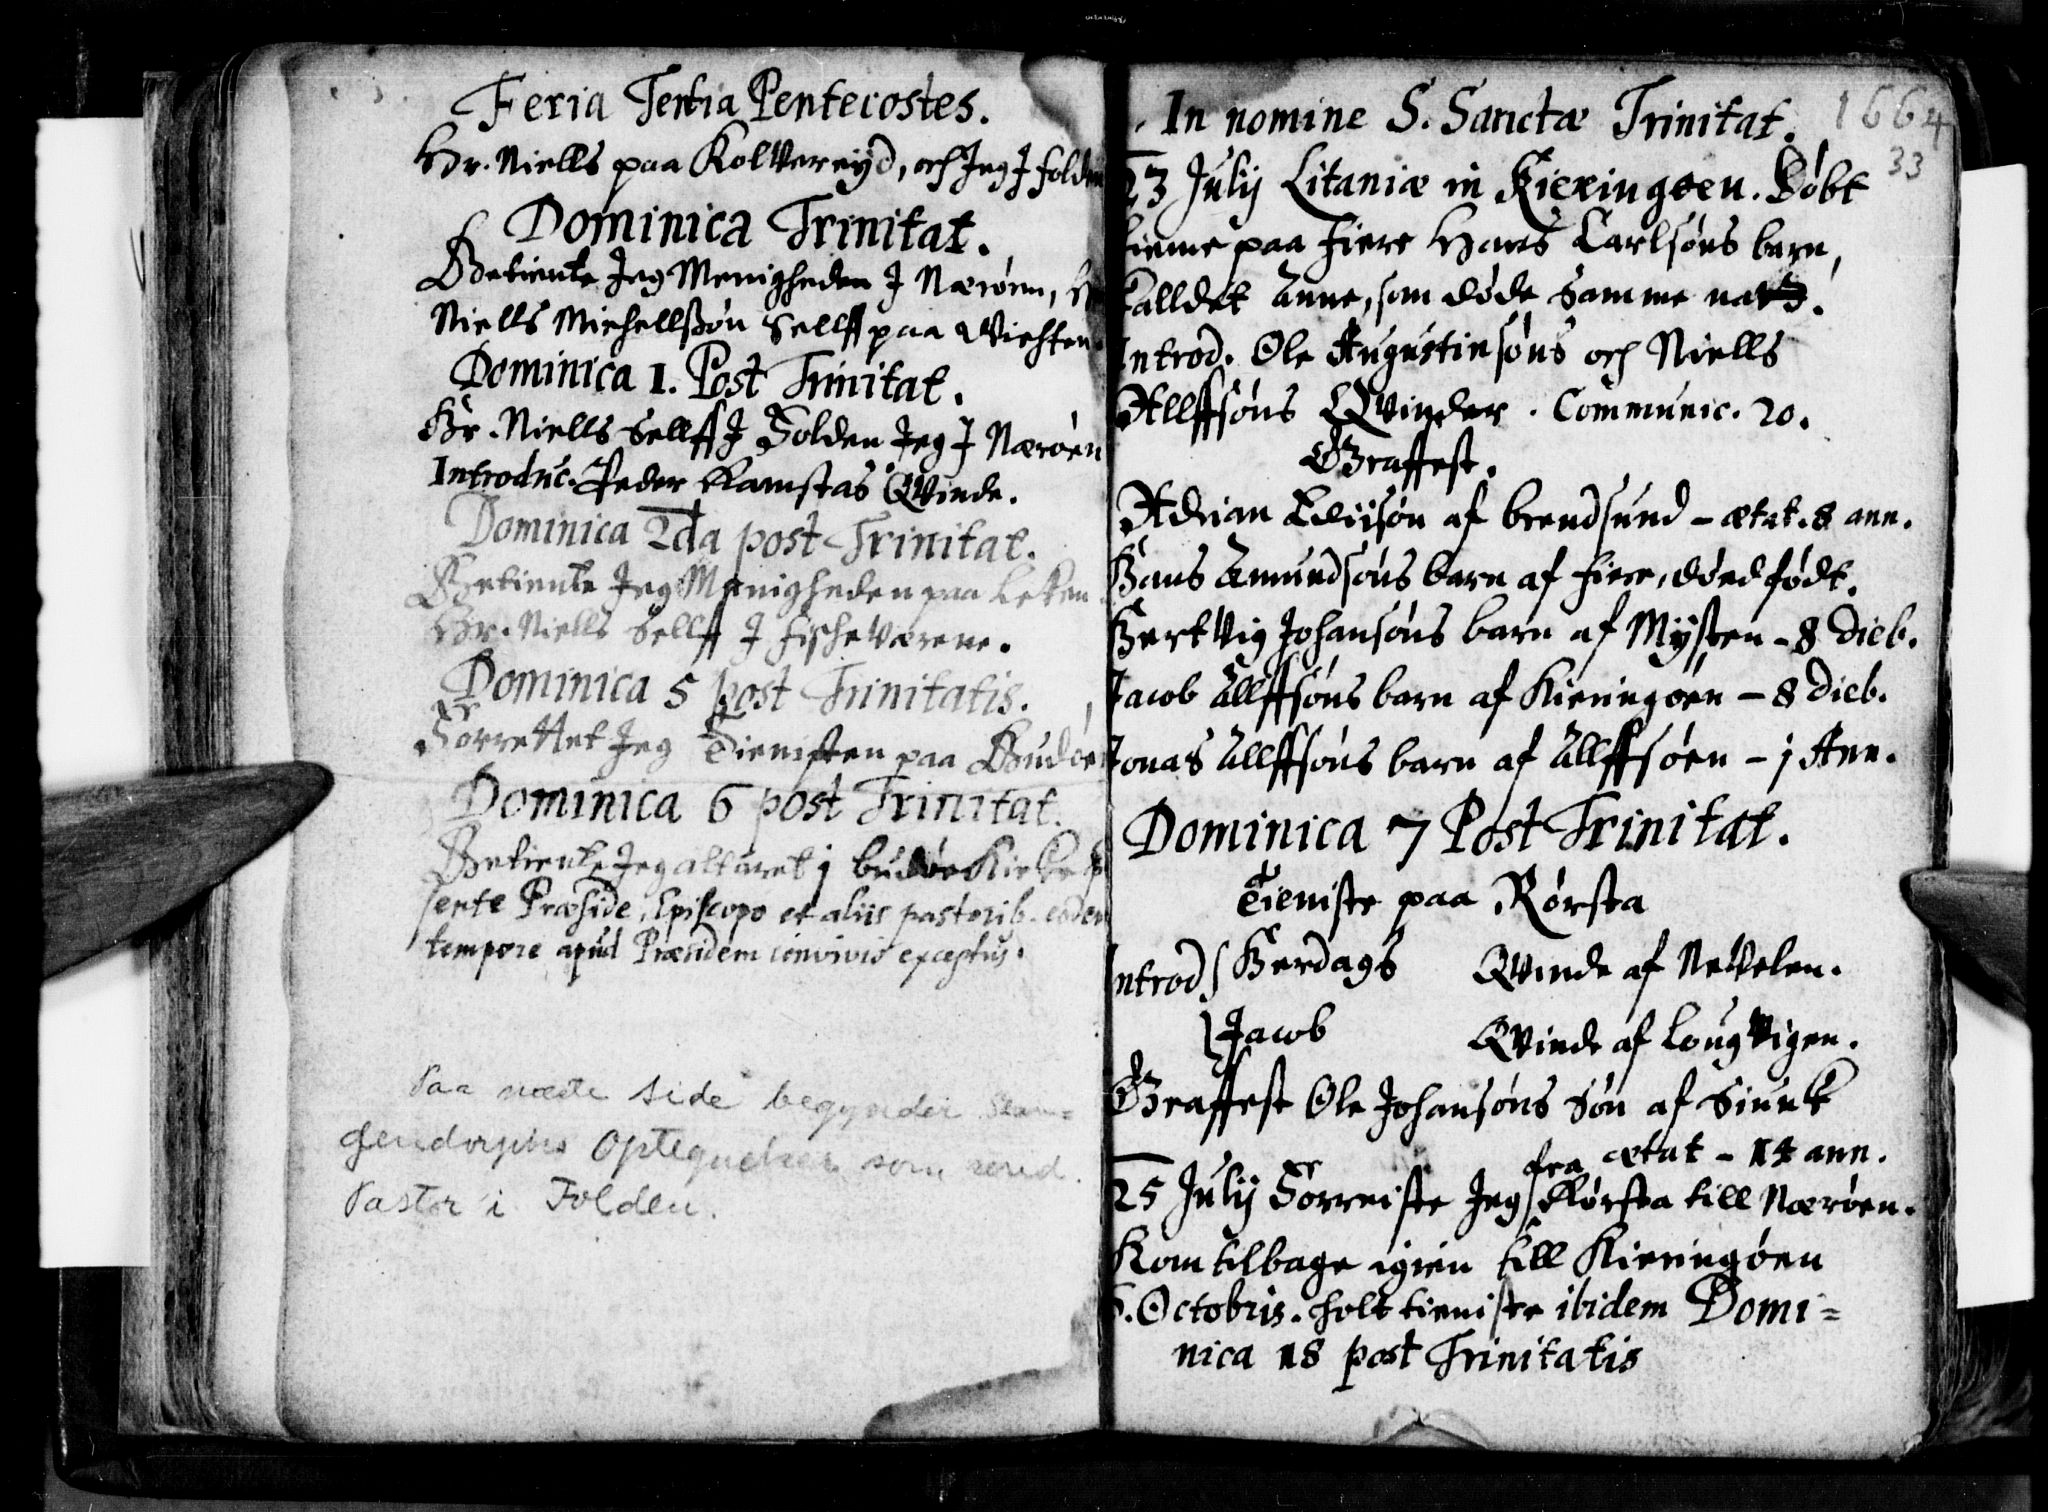 Feria Tertia Pentecostes.
Hr. Niells paa Kolvereyd, och Jeg J folden
Dominica Trinitat.
Betiente Jeg Menigheden J Nærøen, Hr
Niells Michellssøn Sellff paa Vichten.
Dominica 1. Post Trinitat.
Hr. Niells Sellff J Folden Jeg J Nærøen
Introduc. Peder Ramstas Qvinde.
Dominica 2da post Trinitat.
Betiente Jeg Menigheden paa Leken.
Hr. Niells Sellff J fischeværene.
Dominica 5 post Trinitatis.
Forrettet Jeg Tienisten paa Budøe
Dominica 6 post Trinitat.
Betiente Jeg alteret j budøe Kircke
sente Præside, Episcopo et aliis pastorib. eodem
tempore apud Præsidem convivio exceptus.
Paa næste side begynder Stan=
gendorphs Optegnelser som resid.
Pastor i Folden.
In nomine S. Sanctæ Trinitat. 1664
33
23 Julij Litaniæ in Kieringøen. Døbt
hieme paa fiere Hans Carlsøns barn,
kalldet Anne, som døde Samme natt.
Introd. Ole Augustinsøns och Niells
Allffsøns Qvinder. Communic. 20.
Graffest.
Adrian Edisøn af brendsund - ætat. 8 ann.
Hans Amundsøns barn af fiere, død født.
Hertvig Johansøns barn af Mysten - 8 dieb.
Jacob Allffsøns barn af Kieringøen - 8 dieb.
Jonas Allffsøns barn af Allffsøen - j Ann.
Dominica 7 Post Trinitat.
Tieniste paa Rørsta
Introd. Herdags Qvinde af Nevelen.
Jacob Qvinde af Lougvigen.
Graffest Ole Johansøns Søn af Siunk
ætat - 14 ann.
25 Julij Forreiste Jeg fra Rørsta till Nærøen.
Kom tilbage igien till Kieringøen
Octobris. holt tieniste ibidem Domi=
nica 18 post Trinitatis